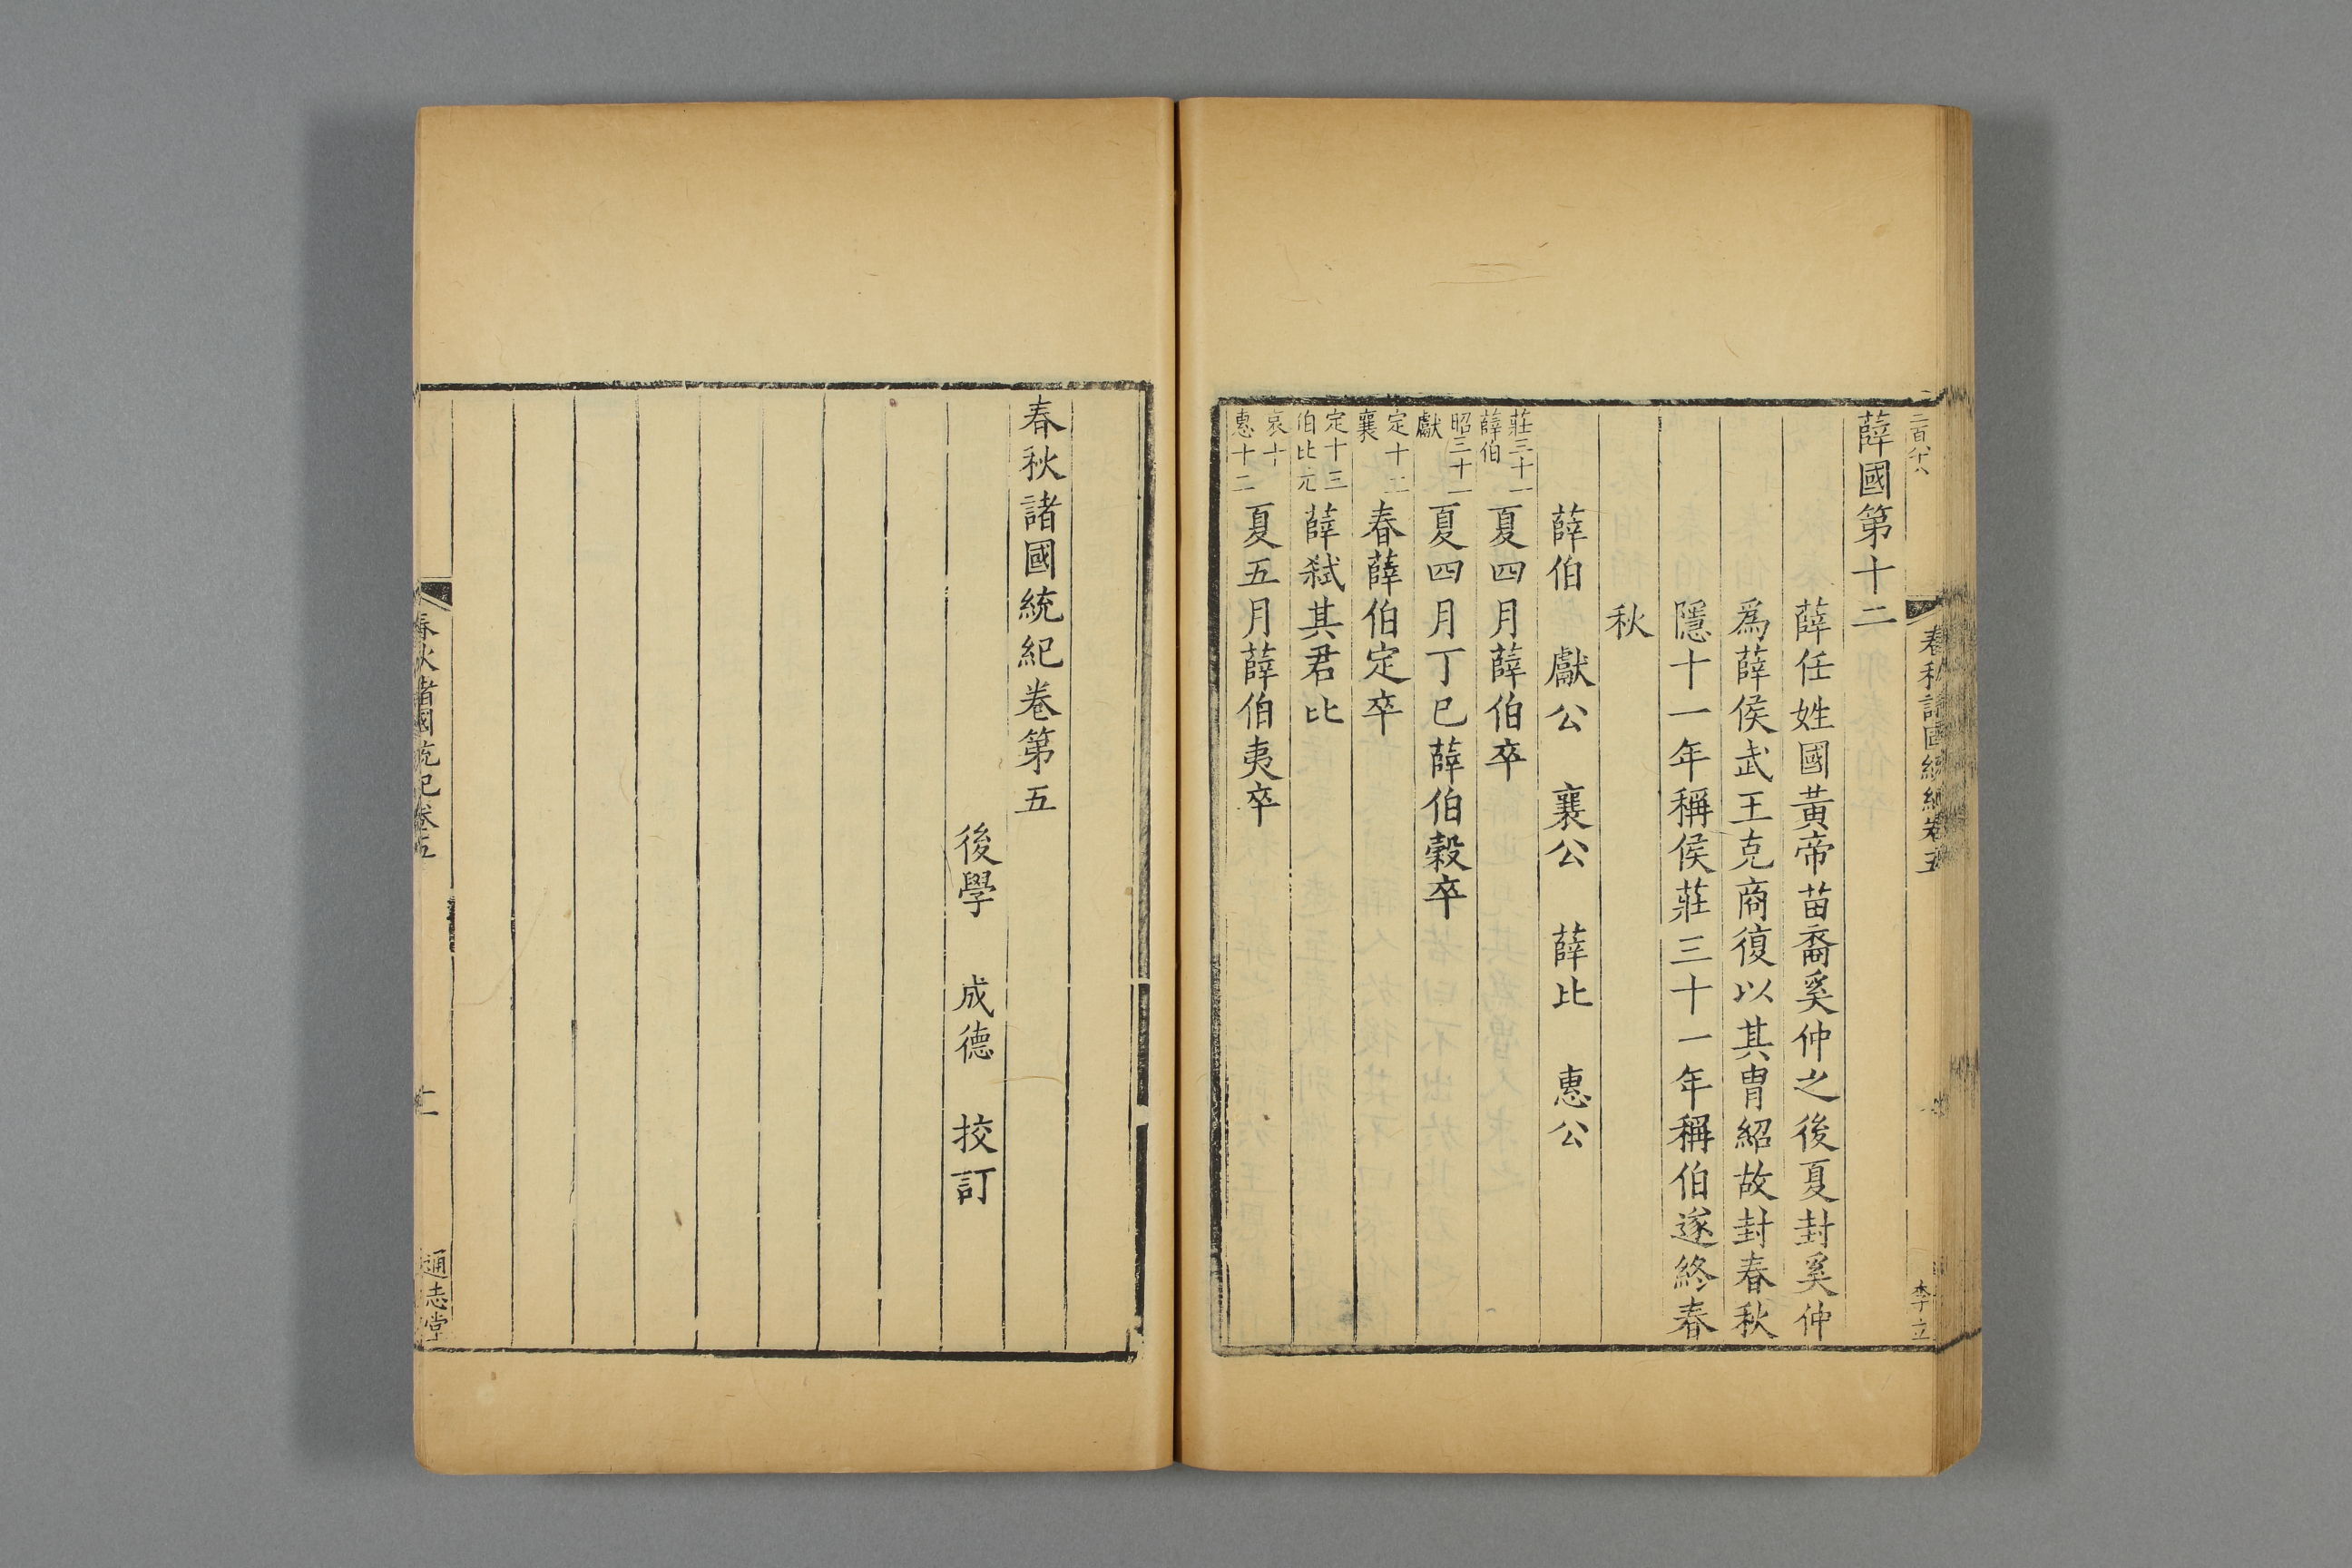 薛國第十二
薛任姓國黃帝苗裔奚仲之後夏封奚仲
爲薛侯武王克商復以其冑紹故封春秋
隱十一年稱侯莊三十一年稱伯遂終春
秋
薛伯　獻公　襄公　薛比　惠公
莊三十一
薛伯
夏四月薛伯卒
昭三十一
獻
夏四月丁巳薛伯穀卒
定十二
襄
春薛伯定卒
定十三
伯比元
薛弒其君比
哀十
惠十二
夏五月薛伯夷卒
李立
春秋諸國統紀卷第五
後學　成德　挍訂
春秋諸國統紀卷五
通志堂